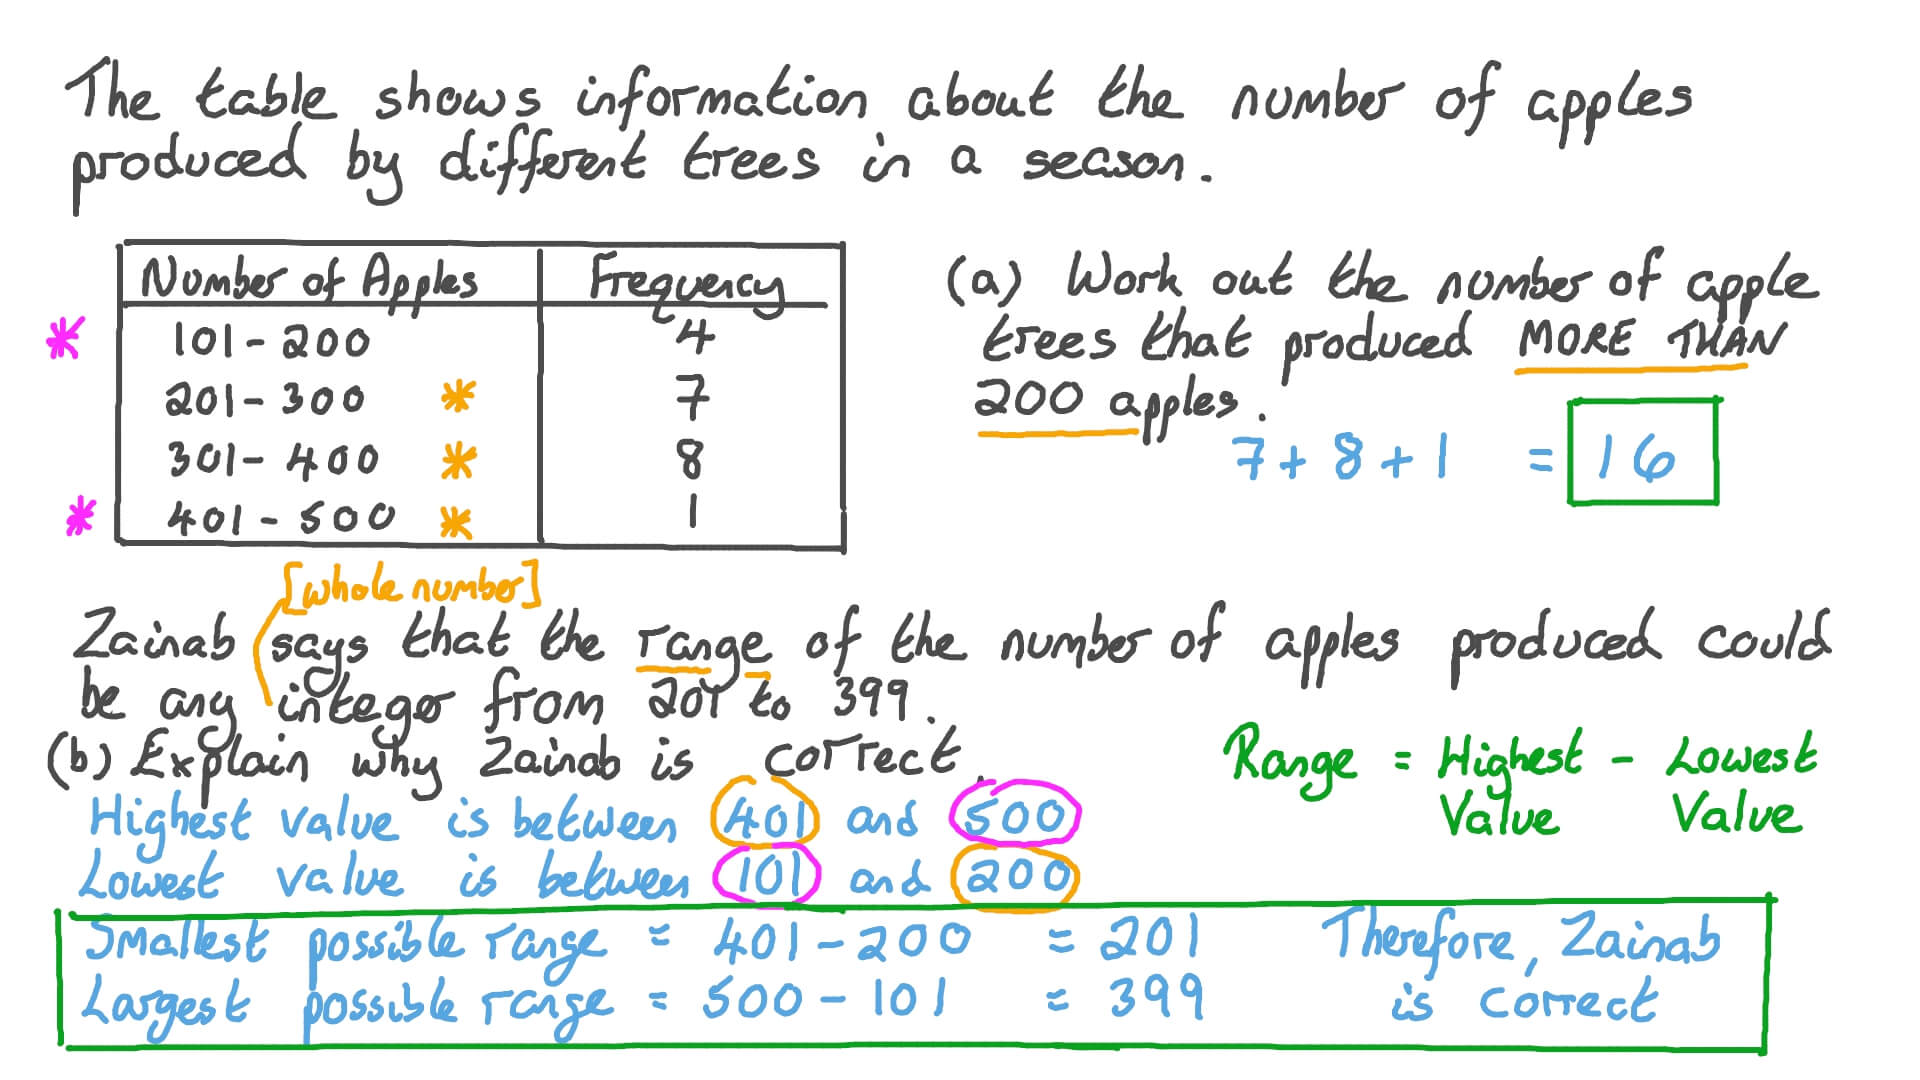 The table shows information about the number of apples
produced by different trees in a season.
Number of Apples Frequency
* 101-200 4
201-300 * 7
301-400 * 8
* 401-500 * 1
(a) Work out the number of apple
trees that produced MORE THAN
200 apples.
7+8+1 = 16
[whole number]
Zainab says that the range of the number of apples produced could
be any integer from 201 to 399.
(b) Explain why Zainab is correct.
Range = Highest Value - Lowest Value
Highest value is between 401 and 500
Lowest value is between 101 and 200
Smallest possible range = 401-200 = 201 Therefore, Zainab
Largest possible range = 500-101 = 399 is correct